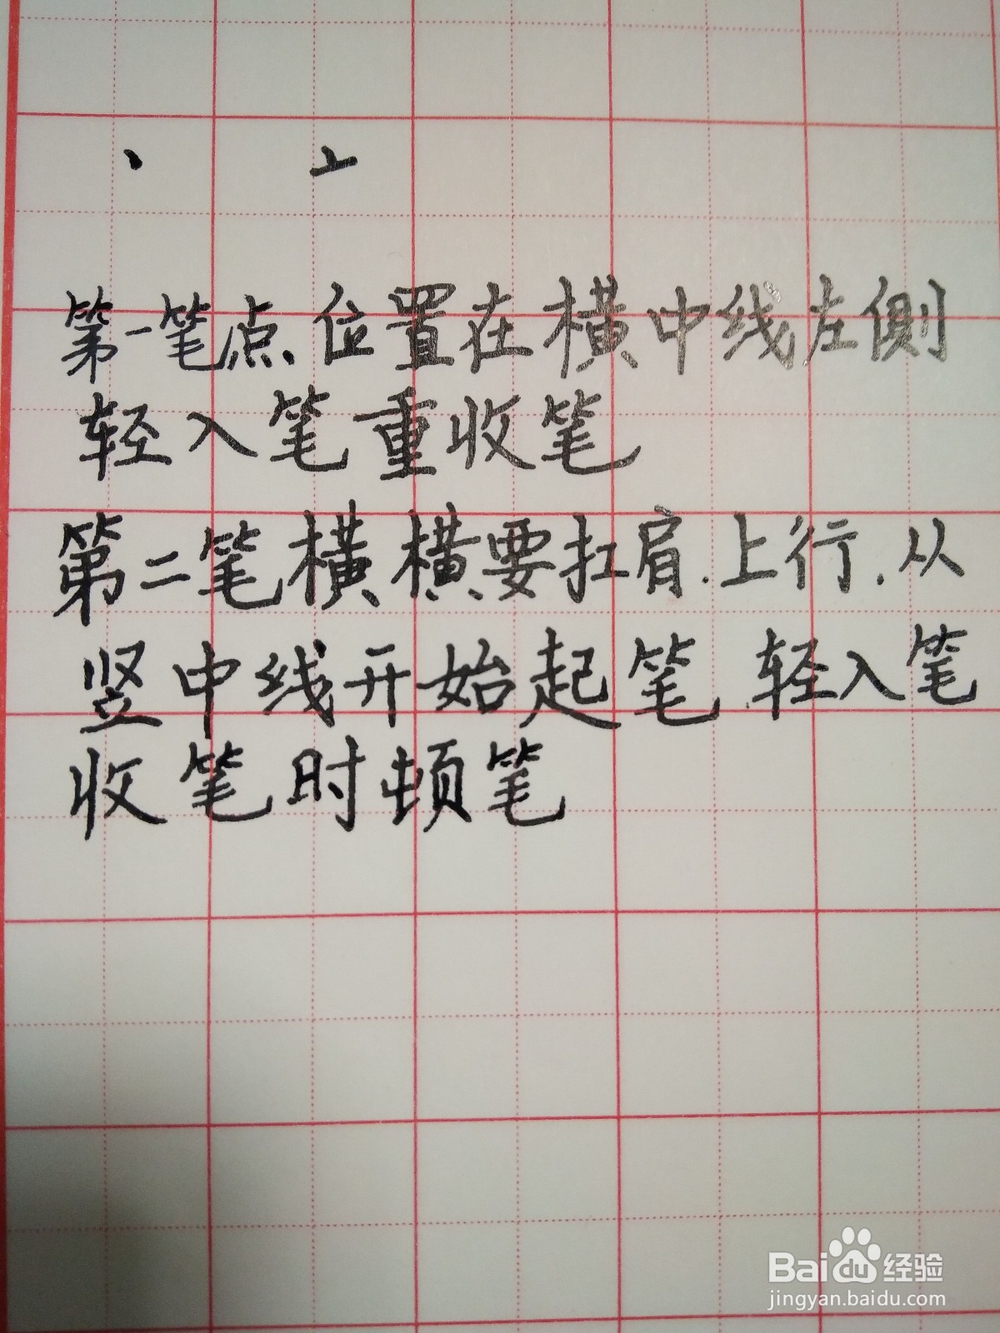 丶 亠
第一笔点位置在横中线左侧
轻入笔重收笔
第二笔横横要扛肩.上行.从
竖中线开始起笔.轻入笔
收笔时顿笔
Baidu经验
jingyan.baidu.com